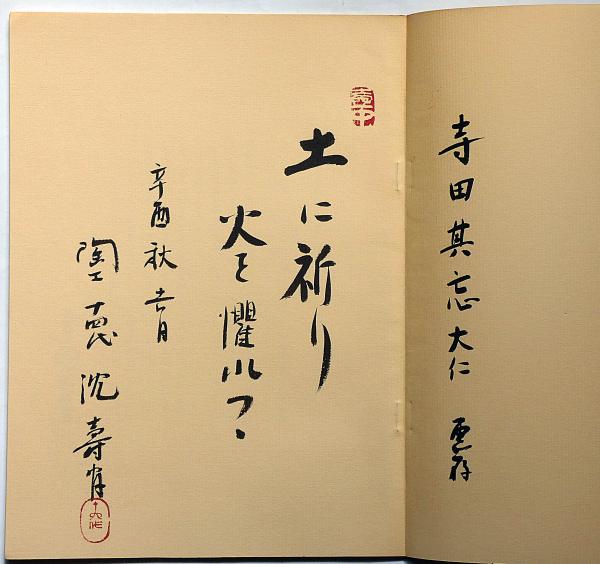 寺田其忘大仁 恵存
土に祈り
火を懼れつゝ
辛酉秋 月
陶工 十四代 沈壽官